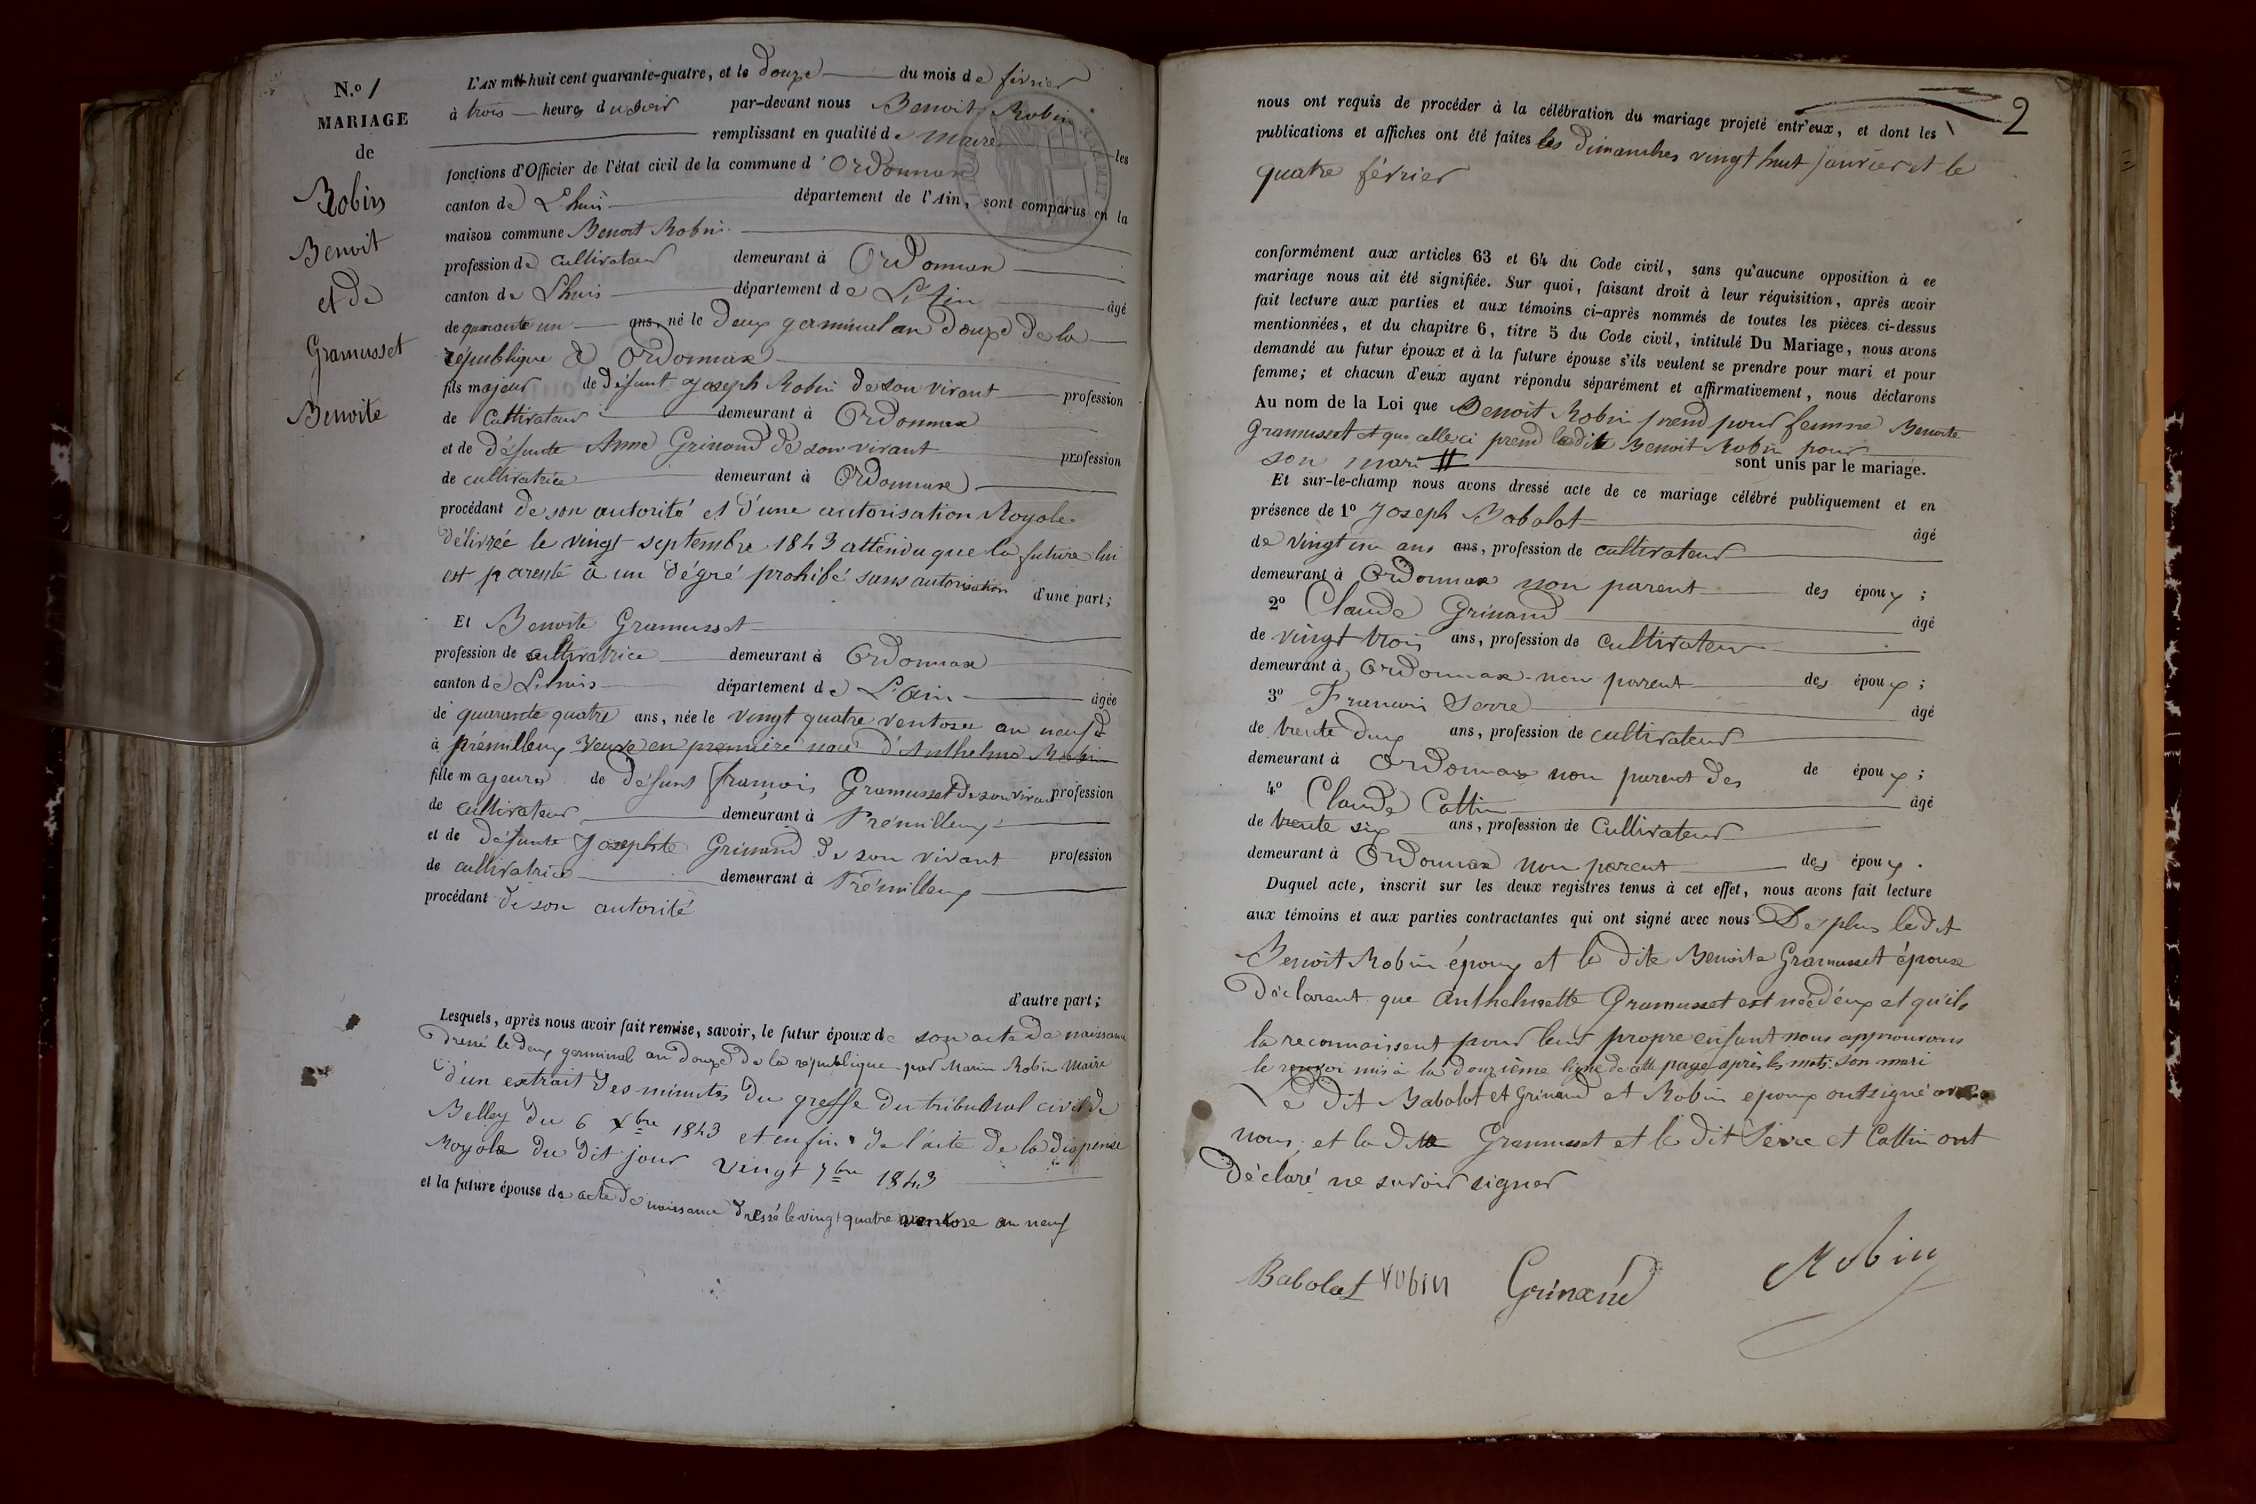 N.º 1
MARIAGE
de
Robin
Benoit
et de
Gramusset
Benoite
L'AN mil huit cent quarante-quatre, et le douze du mois de février
à trois heures du soir par-devant nous Benoit Robin
remplissant en qualité de Maire les
fonctions d'Officier de l'état civil de la commune d'Ordonnax
canton de Lhuis département de l'Ain, sont comparus en la
maison commune Benoit Robin
profession de cultivateur demeurant à Ordonnax
canton de Lhuis département de L'Ain âgé
de quarante un ans, né le deux germinal an douze de la
république à Ordonnax
fils majeur de défunt Joseph Robin de son vivant profession
de cultivateur demeurant à Ordonnax
et de défunte Anne Grinand de son vivant profession
de cultivatrice demeurant à Ordonnax
procédant de son autorité et d'une autorisation Royale
délivrée le vingt septembre 1843 attendu que la future lui
est parente à un dégré prohibé sans autorisation d'une part;
Et Benoite Gramusset
profession de cultivatrice demeurant à Ordonnax
canton de Lhuis département de L'Ain âgée
de quarante quatre ans, née le vingt quatre ventose an neuf
à prémillieux veuve en première noce d'Anthelme Robin
fille majeure de défunt françois Gramusset de son vivant profession
de cultivateur demeurant à Prémillieux
et de défunte Josephte Grinand de son vivant profession
de cultivatrice demeurant à Prémillieux
procédant de son autorité
d'autre part;
Lesquels, après nous avoir fait remise, savoir, le futur époux de son acte de naissance
dressé le deux germinal an douze de la république par Marin Robin Maire
d'un extrait des minutes du greffe du tribunal civil de
Belley du 6 Xbre 1843 et enfin de l'acte de la dispense
Royale du dit jour vingt 7bre 1843
et la future épouse de acte de naissance dressé le vingt quatre ventose an neuf
2
nous ont requis de procéder à la célébration du mariage projeté entr'eux, et dont les
publications et affiches ont été faites les dimanches vingt huit janvier et le
quatre février
conformément aux articles 63 et 64 du Code civil, sans qu'aucune opposition à ce
mariage nous ait été signifiée. Sur quoi, faisant droit à leur réquisition, après avoir
fait lecture aux parties et aux témoins ci-après nommés de toutes les pièces ci-dessus
mentionnées, et du chapitre 6, titre 5 du Code civil, intitulé Du Mariage, nous avons
demandé au futur époux et à la future épouse s'ils veulent se prendre pour mari et pour
femme; et chacun d'eux ayant répondu séparément et affirmativement, nous déclarons
Au nom de la Loi que Benoit Robin prend pour femme Benoite
Gramusset et que celle ci prend le dit Benoit Robin pour
son mari # sont unis par le mariage.
Et sur-le-champ nous avons dressé acte de ce mariage célébré publiquement et en
présence de 1º Joseph Babolat âgé
de vingt un ans ans, profession de cultivateur
demeurant à Ordonnax non parent des époux;
2º Claude Grinand âgé
de vingt trois ans, profession de cultivateur
demeurant à Ordonnax non parent des époux;
3º Francois Serre âgé
de trente deux ans, profession de cultivateur
demeurant à Ordonnax non parent des de époux;
4º Claude Cattin âgé
de trente six ans, profession de Cultivateur
demeurant à Ordonnax non parent des époux.
Duquel acte, inscrit sur les deux registres tenus à cet effet, nous avons fait lecture
aux témoins et aux parties contractantes qui ont signé avec nous De plus le dit
Benoit Robin époux et la dite Benoite Gramusset épouse
déclarent que Anthelmette Gramusset est née d'eux et qu'ils
la reconnaissent pour leur propre enfant nous approuvons
le renvoi mis à la douzième ligne de cette page après les mots: son mari
Le dit Babolat et Grinand et Robin epoux ont signé avec
nous, et la dite Gramusset et le dit Serre et Cattin ont
déclaré ne savoir signer
Babolat Robin Grinand Robin